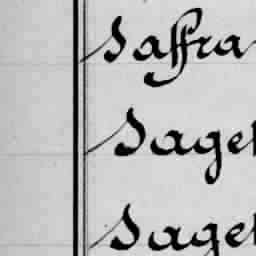 Saffra
Saget
Saget